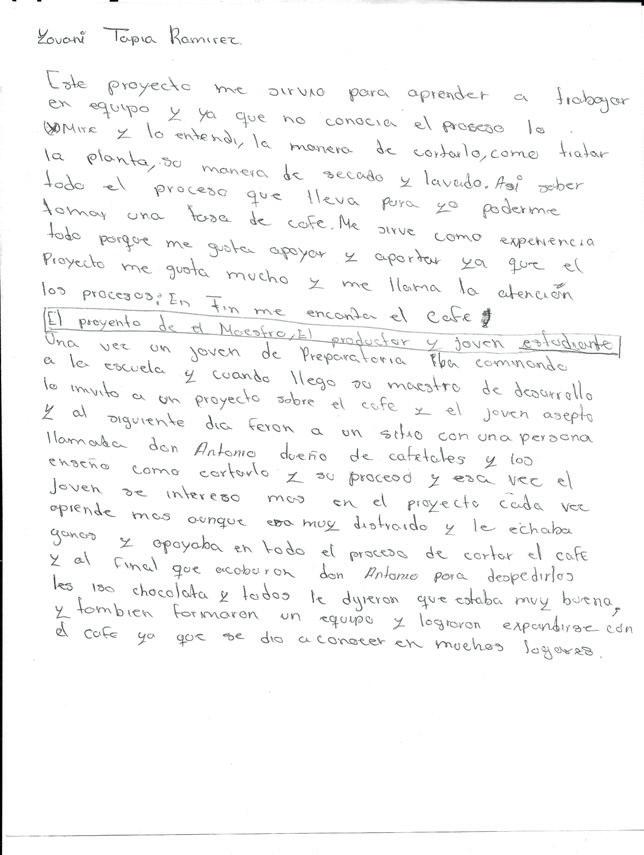 Yovani Tapia Ramirez
Este proyecto me sirvio para aprender a trabajar
en equipo y ya que no conocia el proceso lo
Mire y lo entendi, la manera de cortarlo, como tratar
la planta, su manera de secado y lavado. Asi saber
todo el proceso que lleva para yo poderme
tomar una tasa de cafe. Me sirve como experiencia
todo porque me gusta apoyar y aportar ya que el
Proyecto me gusta mucho y me llama la atención
los procesos: En Fin me enconta el cafe
El proyento de el Maestro, El productor y joven estudiante
Una vez un joven de Preparatoria Iba caminando
a la escuela y cuando llego su maestro de desarrollo
lo invito a un proyecto sobre el cafe y el joven asepto
y al siguiente dia feron a un sitio con una persona
llamaba don Antonio dueño de cafetales y los
enseño como cortarlo y su proceso y esa vez el
joven se intereso mas en el proyecto cada vez
aprende mas aunque era muy distraido y le echaba
ganas y apoyaba en todo el proceso de cortar el cafe
y al final que acabaron don Antonio para despedirlos
les iso chocolata y todos le dyieron que estaba muy buena,
y tombien formaron un equipo y lograron expandirse con
el cafe ya que se dio a conocer en muchos logares.